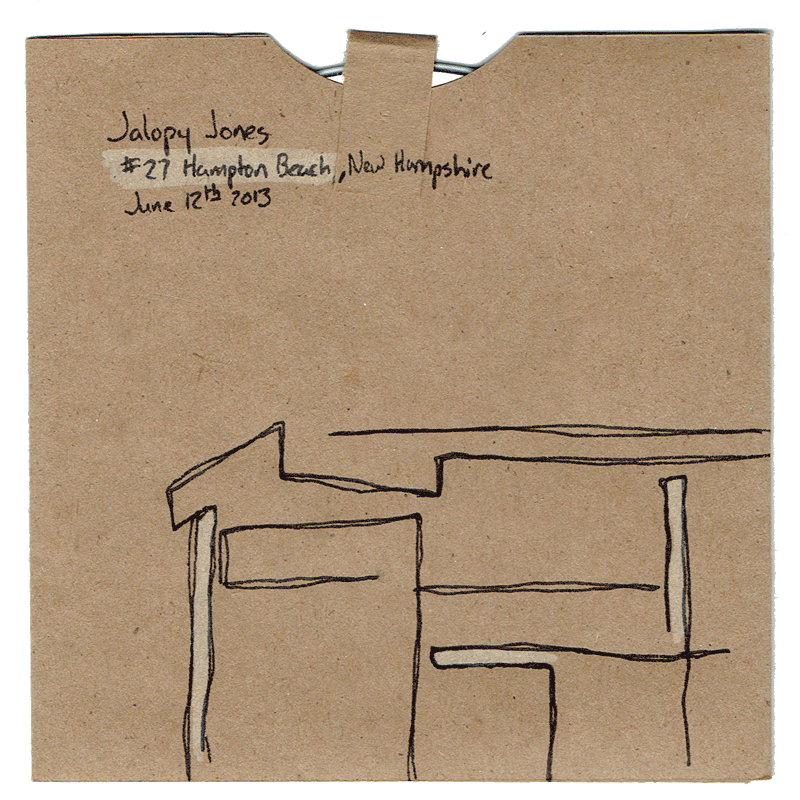 Jalopy Jones
#27 Hampton Beach, New Hampshire
June 12th 2013